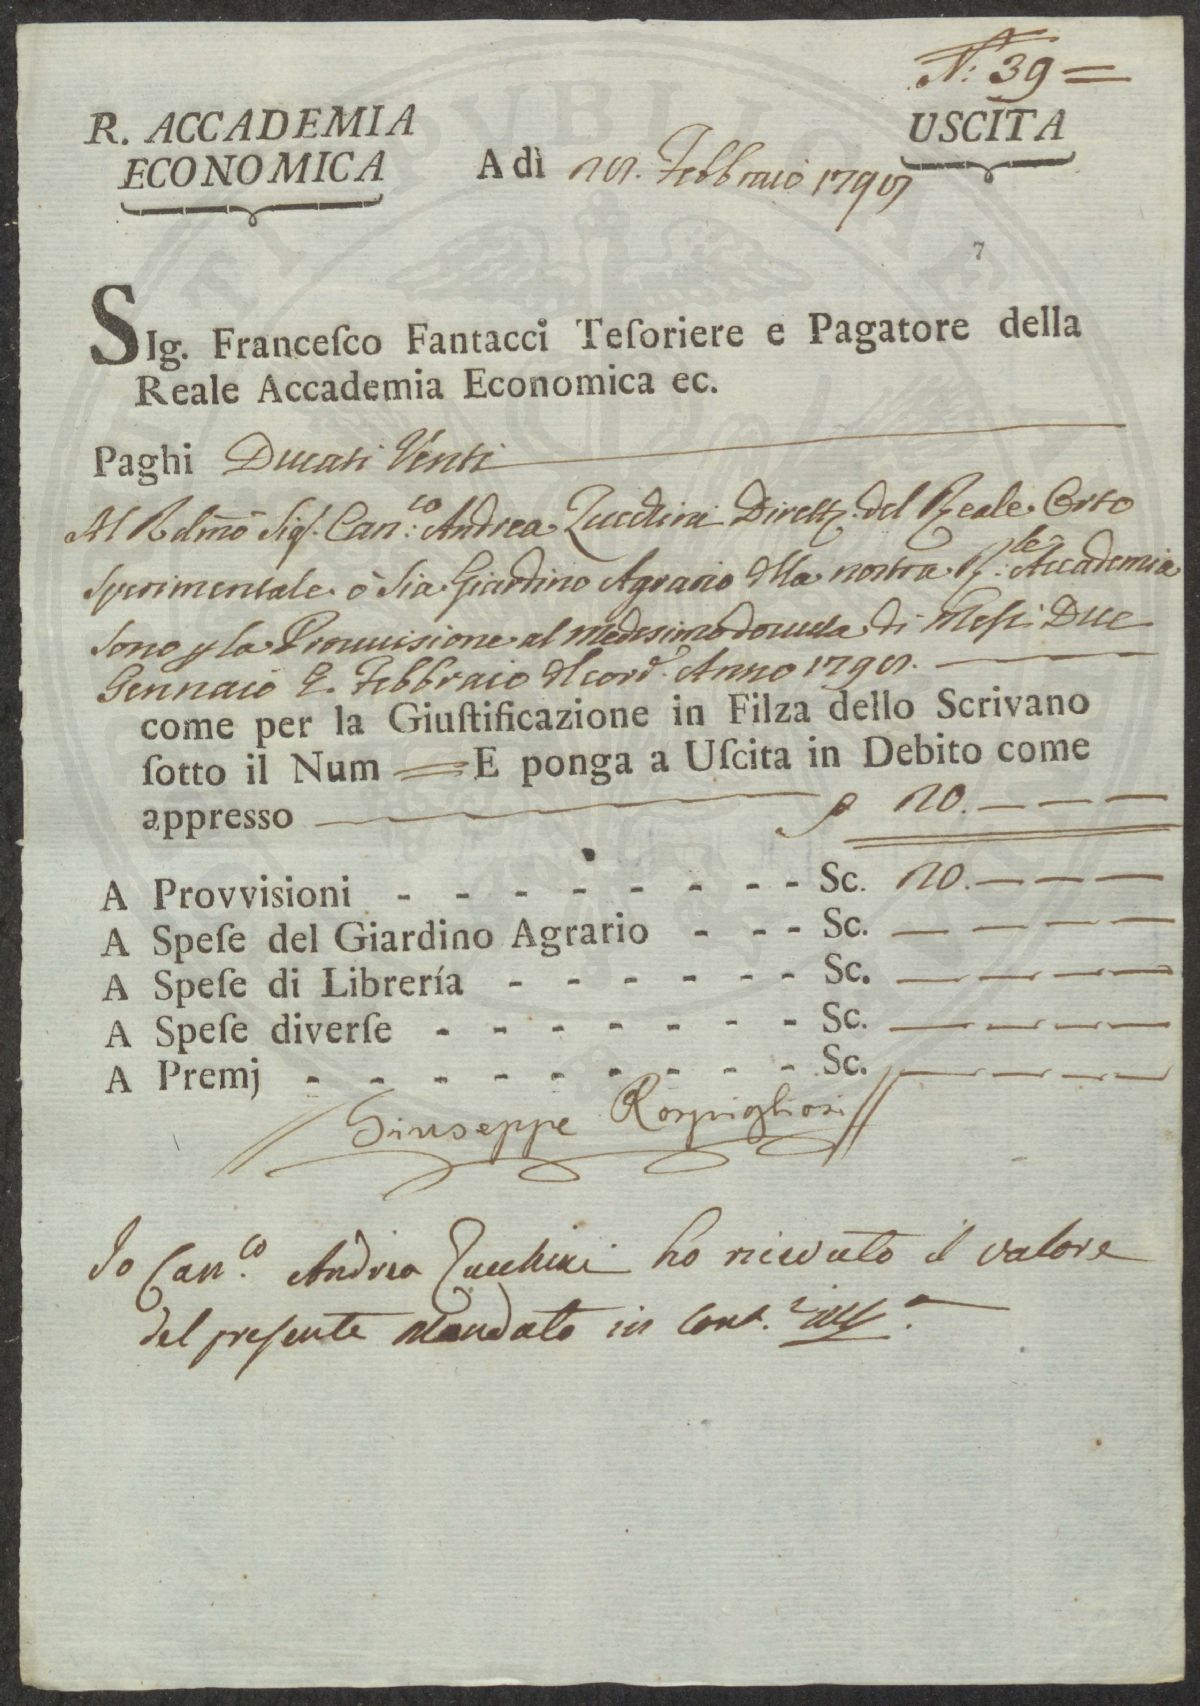 N: 39
R. ACCADEMIA
ECONOMICA
USCITA
A dì Febbraio
7
SIg. Franceſco Fantacci Teſoriere e Pagatore della
Reale Accademia Economica ec.
Paghi Ducati Venti
Al Sig. Can.co Andrea Zucchini del Reale Orto
sperimentale ò sia Giardino Agrario della nostra R.le Accademia
sono la Provvisione al medesimo dovuta di Mesi Due
Gennaio E Febbraio Anno
come per la Giuſtificazione in Filza dello Scrivano
ſotto il Num E ponga a Uſcita in Debito come
appresso 20.
A Provvisioni - - - - - - - - Sc. 20.
A Speſe del Giardino Agrario - - - Sc.
A Speſe di Librería - - - - - - Sc.
A Speſe diverſe - - - - - - - Sc.
A Premj - - - - - - - - - Sc.
Giuseppe Rospigliosi
Io Can.co Andrea Zucchini ho ricevuto il valore
del presente Mandato in